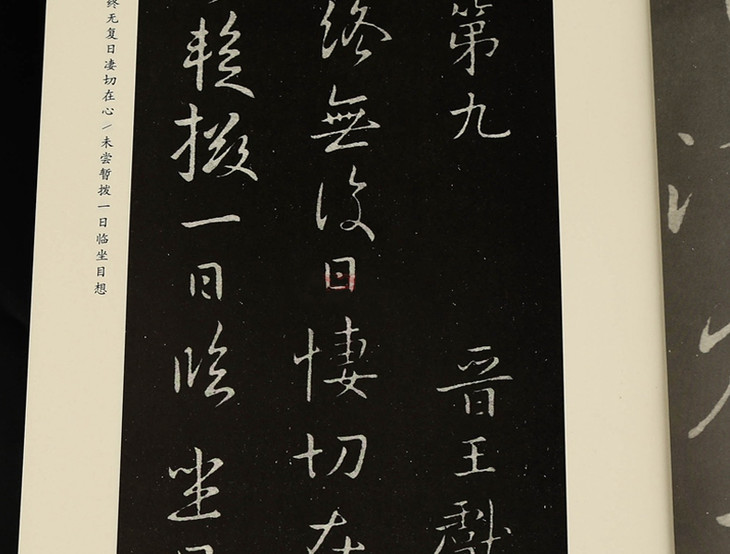 第九 晋王獻
終無復日悽切在
暫撥一日臨坐目
终无复日凄切在心/未尝暂拨一日临坐目想